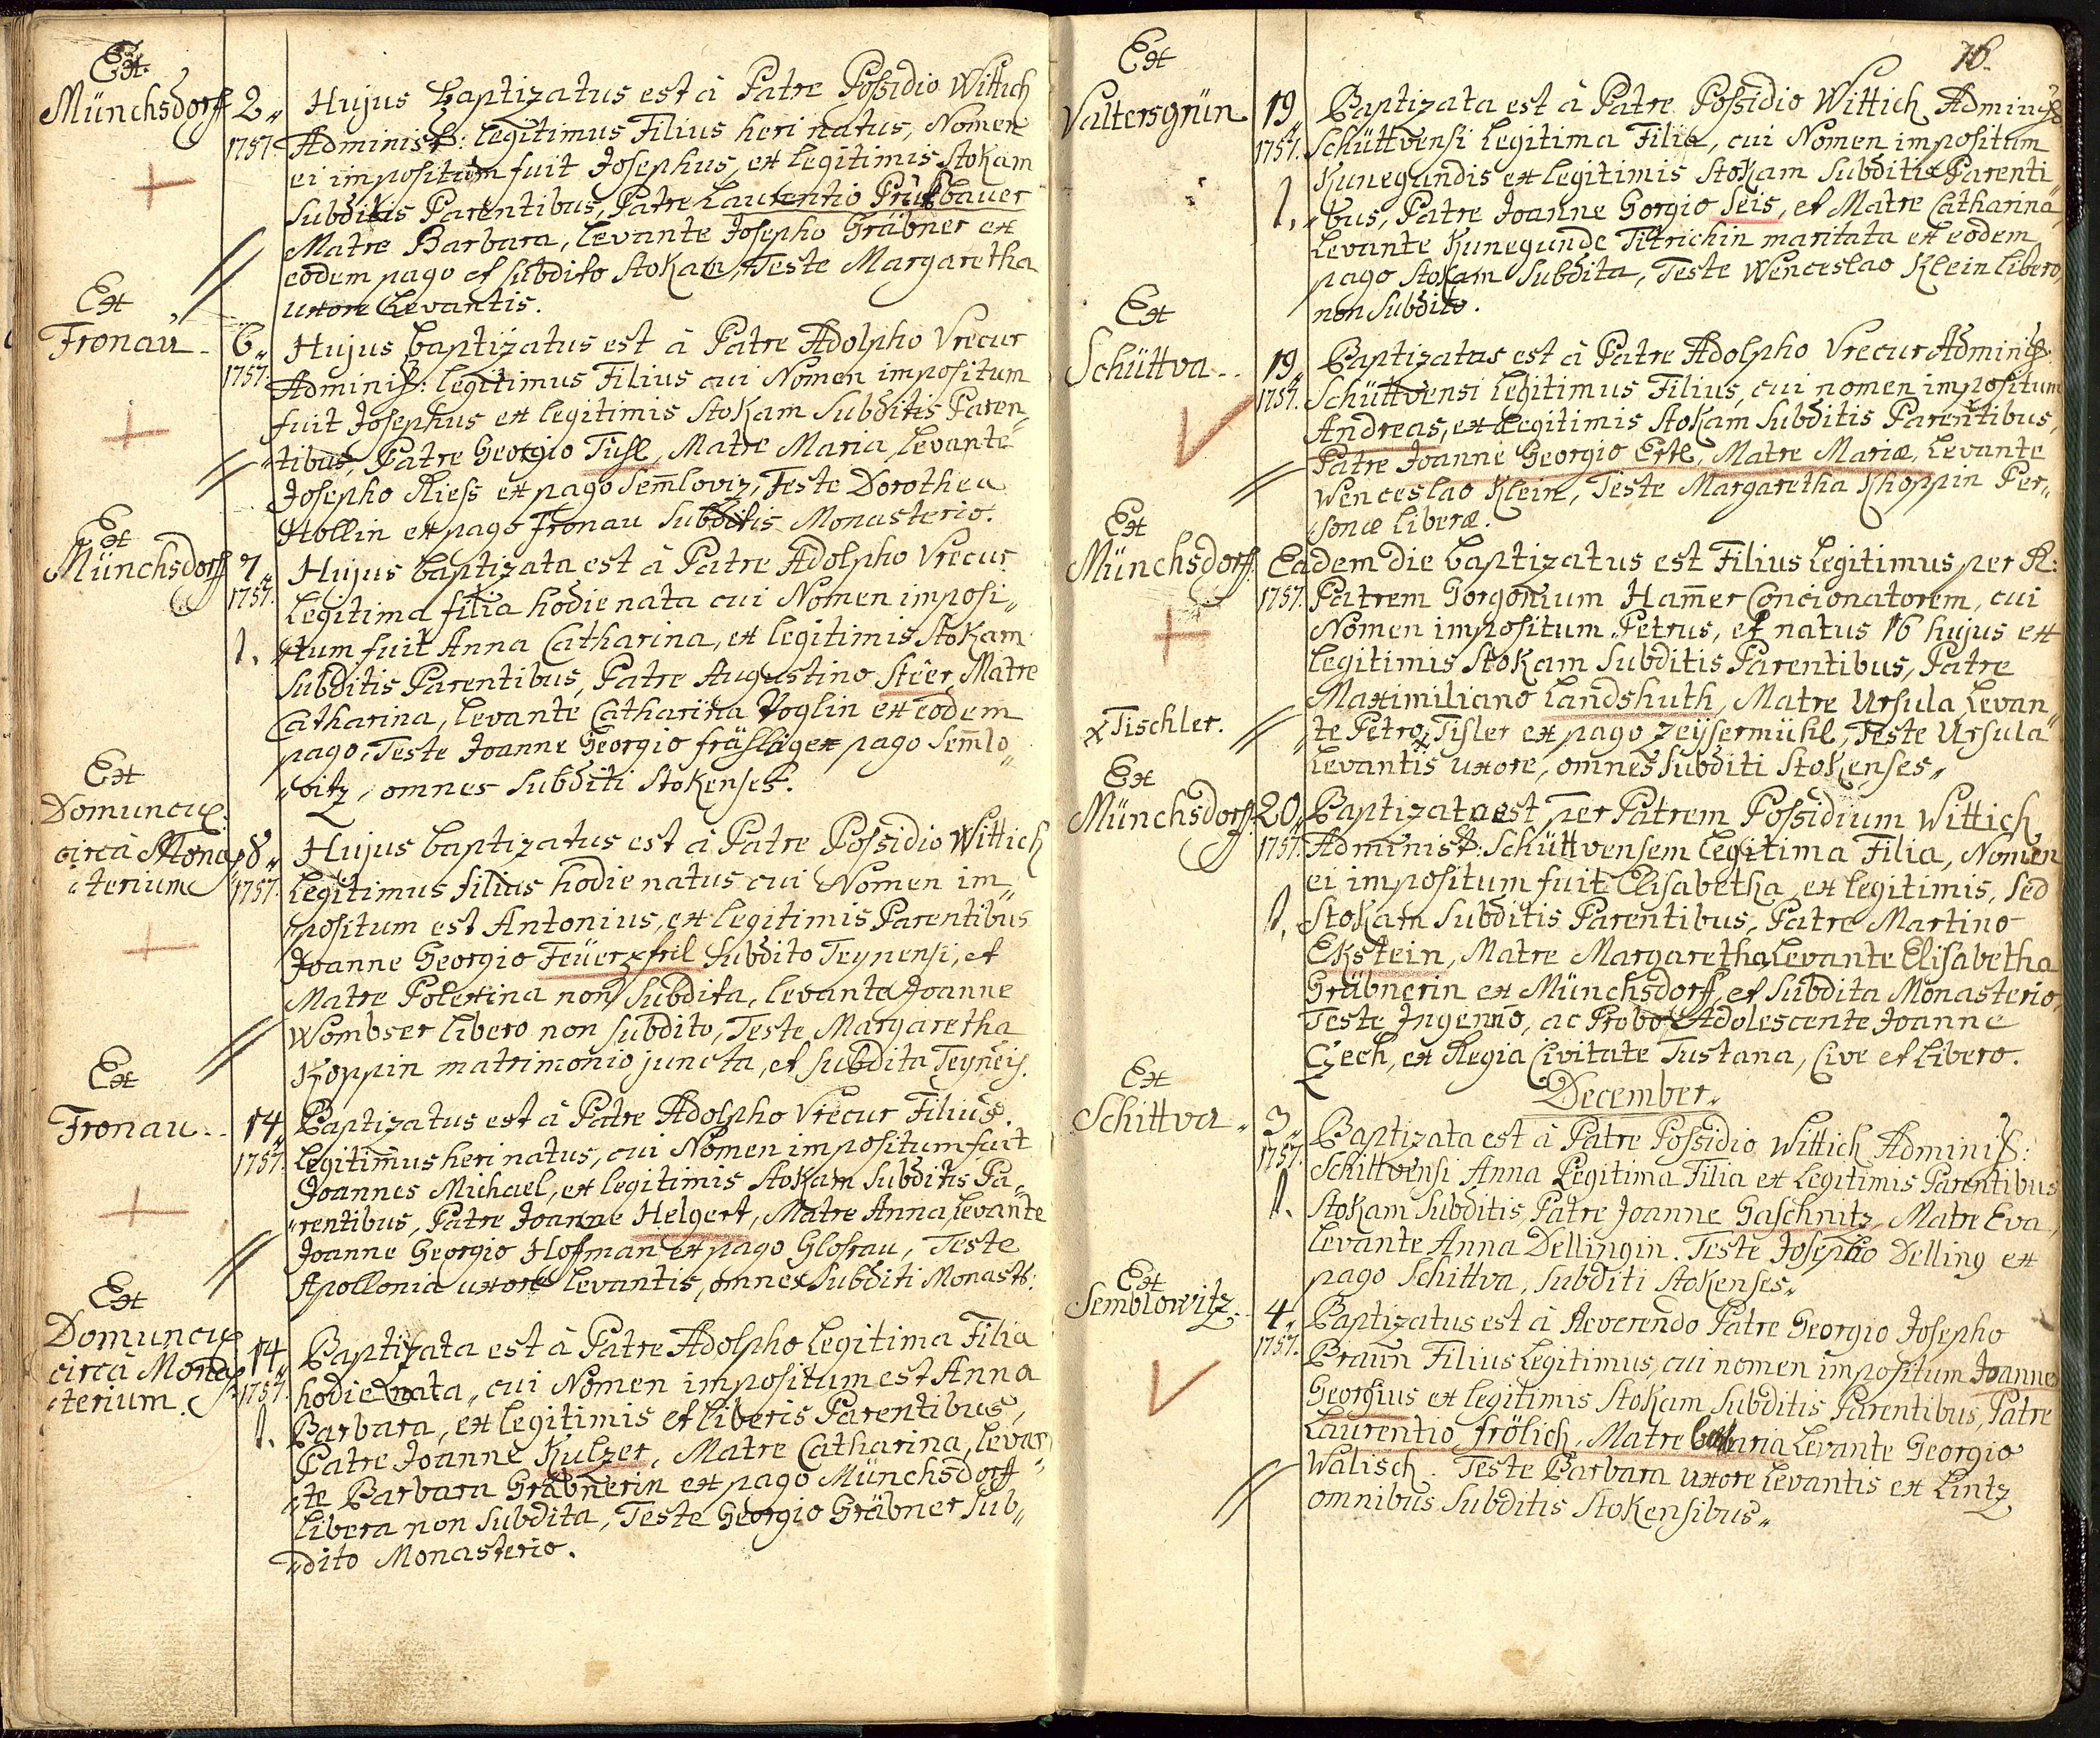 Ex
Münchsdorff
2 Hujus baptizatus est à Patre Possidio Wittich
1757. Administ: legitimus Filius heri natus, Nomen
ei impositum fuit Josephus, ex legitimis Stokam
Subditis Parentibus, Patre Laurentio
Matre Barbara, levante Josepho Gräbner ex
eodem pago et subdito Stokam, Teste Margaretha
uxore Levantis.
Ex
Fronau
6 Hujus baptizatus est à Patre Adolpho Vrecur
1757. Administ: legitimus Filius cui Nomen impositum
fuit Josephus ex legitimis Stokam Subditis Paren„
„tibus, Patre Georgio Tuhl, Matre Maria, levante
Josepho Riess ex pago Sem̄loviz, Teste Dorothea
Stollin ex pago Fronau Subditis Monasterio.
Ex
Münchsdorff
7 Hujus baptizata est à Patre Adolpho Vrecur
1757. Legitima filia hodie nata cui Nomen imposi„
1. „tum fuit Anna Catharina, ex legitimis Stokam
Subditis Parentibus, Patre Augustino Stëer, Matre
Catharina, levante Catharina Voglin ex eodem
pago, Teste Joanne Georgio ex pago Sem̄lo„
„vitz, omnes Subditi Stokenses.
Ex
Domuncis
circà Mona
„sterium
8 Hujus baptizatus est à Patre Possidio Wittich
1757. legitimus filius hodie natus cui Nomen im„
„positum est Antonius, ex legitimis Parentibus
Joanne Georgio Subdito Teynensi, et
Matre Potexina non Subdita, levante Joanne
Wombser libero non subdito, Teste Margaretha
Koppin matrimonio juncta, et subdita Teyneis.
Ex
Fronau
14 Baptizatus est à Patre Adolpho Vrecur Filius
1757. legitimus heri natus, cui Nomen impositum fuit
Joannes Michael, ex legitimis Stokam Subditis Pa„
„rentibus, Patre Joanne Helgert, Matre Anna, levante
Joanne Georgio Hofman ex pago Glosau, Teste
Apollonia uxore levantis, omnes Subditi Monast:
Ex
Domuncis
circà Mona
„sterium
14 Baptizata est à Patre Adolpho legitima Filia
1757. hodie nata, cui Nomen impositum est Anna
1. Barbara, ex legitimis et liberis Parentibus,
Patre Joanne Kulzer, Matre Catharina, levan„
„te Barbara Gräbnerin ex pago Münchsdorff
libera non Subdita, Teste Georgio Gräbner Sub„
„dito Monasterio.
16.
Ex
Valtersgrün
19 Baptizata est à Patre Possidio Wittich Administ
1757. Schüttvensi legitima Filia, cui Nomen impositum
Kunegundis ex legitimis Stokam Subditis Parenti
1. „bus, Patre Joanne Gorgio Seis, et Matre Catharina
Levante Kunegunde Titrichin maritata ex eodem
pago Stokam Subdita, Teste Wenceslao Klein libero,
non Subdito.
Ex
Schüttva
19 Baptizatus est à Patre Adolpho Vrecur Administ.
1757. Schüttvensi legitimus Filius, cui nomen impositum
Andreas, ex legitimis Stokam Subditis Parentibus,
Patre Joanne Georgio Ertl, Matre Mariæ, Levante
Wenceslao Klein, Teste Margaretha Khoppin Per„
sonæ liberæ.
Ex
Münchsdorff
Eadem die baptizatus est Filius legitimus per R:
1757. Patrem Gorgonium Ham̄er Concionatorem, cui
Nomen impositum Petrus, et natus 16 hujus ex
legitimis Stokam Subditis Parentibus, Patre
Maximiliano Landshuth, Matre Ursula Levan„
x Tischler.
„te Petro x Tisler ex pago Zeysermühl, Teste Ursula
levantis uxore, omnes Subditi Stokenses„
Ex
Münchsdorff
20 Baptizata est per Patrem Possidium Wittich
1757. Administ: Schüttvensem legitima Filia, Nomen
ei impositum fuit Elisabetha, ex legitimis, sed
1. Stokam Subditis Parentibus, Patre Martino
Ekstein, Matre Margaretha, Levante Elisabetha
Gräbnerin ex Münchsdorff, et subdita Monasterio
Teste Ingenuo, ac Probo Adolescente Joanne
Czech, ex Regia Civitate Tustana, Cive et libero.
December.
Ex
Schittva
3 Baptizata est à Patre Possidio Wittich Administ:
1757. Schittvensi Anna Legitima Filia ex Legitimis Parentibus
1. Stokam Subditis, Patre Joanne Gaschnitz, Matre Eva,
levante Anna Dellingin. Teste Josepho Delling ex
pago Schittva, Subditi Stokenses„
Ex
Semblowitz
4 Baptizatus est à Reverendo Patre Georgio Josepho
1757. Braun Filius Legitimus, cui nomen impositum Joannes
Georgius ex legitimis Stokam Subditis Parentibus, Patre
Laurentio frölich, Matre Levante Georgio
Walisch. Teste Barbara uxore levantis ex Lintz
omnibus Subditis Stokensibus„